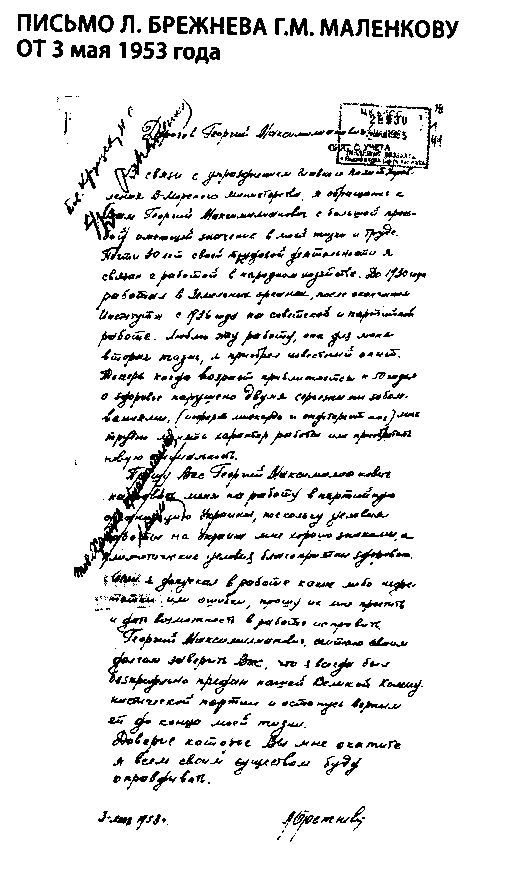 ПИСЬМО Л. БРЕЖНЕВА Г.М. МАЛЕНКОВУ
ОТ 3 мая 1953 года
Дорогой Георгий Максимилианович,
связи с упразднением Главного Политуправ-
ления В-Морского Министерства, я обращаюсь к
Вам Георгий Максимилианович с большой прось-
бой имеющей значение в моей жизни и труде.
Почти 30 лет своей трудовой деятельности я
связан с работой в народном хозяйстве. До 1930 года
работал в Земельных органах, после окончания
Института с 1936 года на советской и партийной
работе. Люблю эту работу, она для меня
вторая жизнь, я приобрел известный опыт.
Теперь когда возраст приближается к 50 годам
а здоровье нарушено двумя серьезными забол-
ваниями, (инфаркт миокарда и эндартериит ног) мне
трудно менять характер работы или приобретать
новую специальность.
Прошу Вас Георгий Максимилианович
направить меня на работу в партийную
организацию Украины, поскольку условия
работы на Украине мне хорошо знакомы, а
климатические условия благоприятны здоровью.
Если я допускал в работе какие либо недос-
татки или ошибки, прошу их мне простить
и дать возможность в работе исправить.
Георгий Максимилианович, считаю своим
долгом заверить Вас, что я всегда был
безпредельно предан нашей Великой Комму
нистической партии и останусь верным
ей до конца моей жизни.
Доверие которое Вы мне окажите
я всем своим существом буду
оправдывать.
3 мая 1953 г.
Л Брежнев